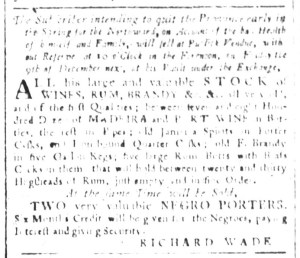 The Subscriber intending to quit the Province early in
the Spring for the Northward, on Account of the bad Health
of himself and Family, will sell at Public Vendue, with
out Reserve at 10 o'Clock in the Forenoon, on Friday the
9th of December next, at his Vault under the Exchange,
ALL his large and valuable STOCK of
WINES, RUM, BRANDY &c. &c. all very old,
and of the first Qualities; between seven and eight Hun-
dred Dozen of MADEIRA and PORT WINE in Bot-
tles, the rest in Pipes; old Jamaica Spirits in Porter
Casks, and Iron bound Quarter Casks; old F. Brandy
in five Gallon Kegs; five large Rum Butts with
Cocks in them, that will hold between twenty and thirty
Hogsheads of Rum, just empty and in fine Order.
At the same Time will be Sold,
TWO very valuable NEGRO PORTERS.
Six Months Credit will be given for the Negroes, paying
Interest and giving Security.
RICHARD WADE